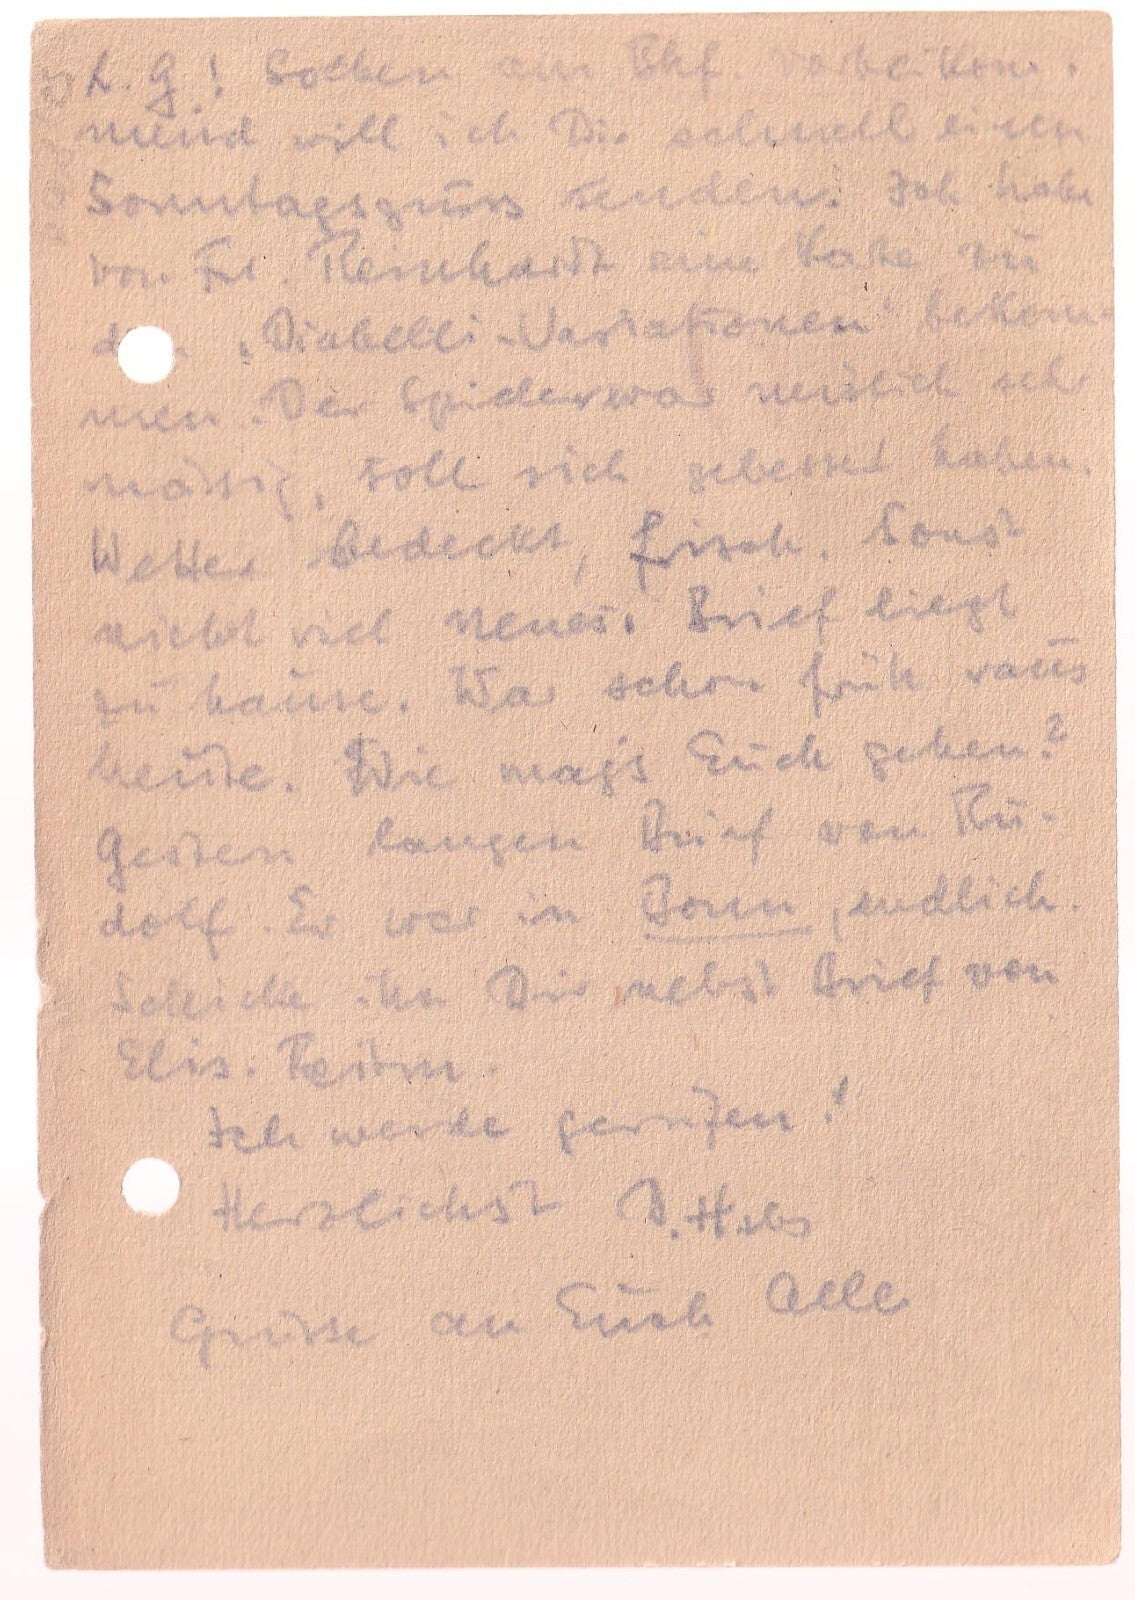 L. G.! Soeben am Bhf. vorbeikom-
mend will ich Dir schnell einen
Sonntagsgruss senden. Ich habe
von Frl. Reinhardt eine Karte zu
den „Diabelli-Variationen" bekom-
men. Der Spieler war neulich sehr
mässig, soll sich gebessert haben.
Wetter bedeckt, frisch. Sonst
nicht viel neues. Brief liegt
zu hause. War schon früh raus
heute. Wie mag's Euch gehen?
Gestern langen Brief von Ru-
dolf. Er war in Bonn, endlich.
Schicke ihn Dir nebst Brief von
Elis.
Ich werde gerufen!
Herzlichst D.
Grüsse an Euch Alle